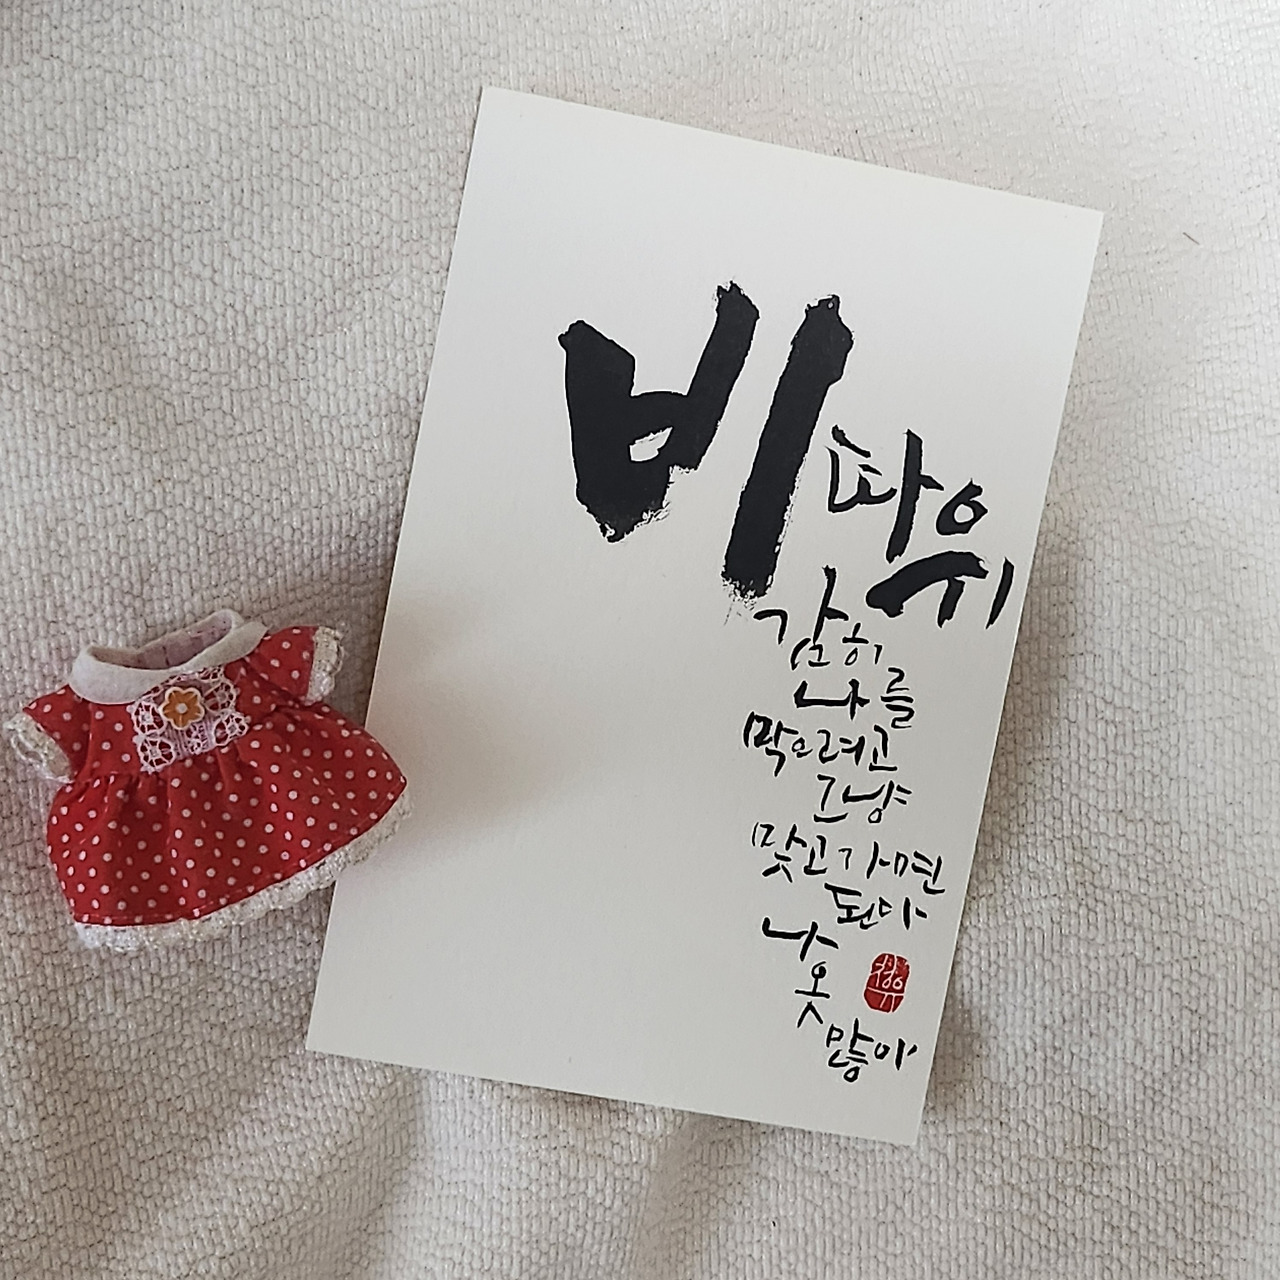 비따위
감히
나를
막으려고
그냥
맞고가면
된다
나
옷
많아